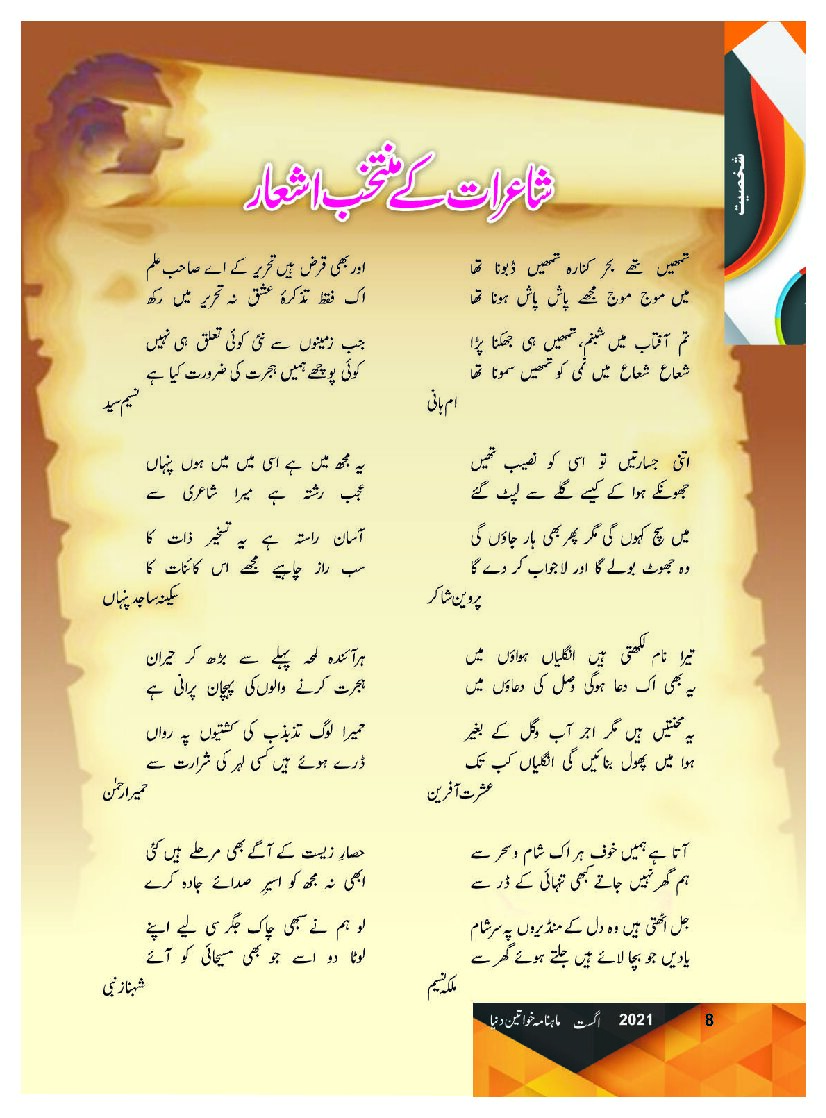 شخصیت
شاعرات کے منتخب اشعار
تمھیں تھے بحر کنارہ تمھیں ڈبونا تھا
میں موج موج مجھے پاش پاش ہونا تھا
تم آفتاب میں شبنم، تمھیں ہی جھکنا پڑا
شعاع شعاع میں نمی کو تمھیں سمونا تھا
ام ہانی
اتنی جسارتیں تو اسی کو نصیب تھیں
جھونکے ہوا کے کیسے گلے سے لپٹ گئے
میں سچ کہوں گی مگر پھر بھی ہار جاؤں گی
وہ جھوٹ بولے گا اور لاجواب کر دے گا
پروین شاکر
تیرا نام لکھتی ہیں انگلیاں ہواؤں میں
یہ بھی اک دعا ہوگی وصل کی دعاؤں میں
یہ محنتیں ہیں مگر اجر آب وگل کے بغیر
ہوا میں پھول بنائیں گی انگلیاں کب تک
عشرت آفرین
آتا ہے ہمیں خوف ہر اک شام وسحر سے
ہم گھر نہیں جاتے کبھی تنہائی کے ڈر سے
جل اٹھتی ہیں وہ دل کے منڈیروں پہ سرشام
یادیں جو بچا لائے ہیں جلتے ہوئے گھر سے
ملکہ نسیم
اور بھی قرض ہیں تحریر کے اے صاحب علم
اک فقط تذکرۂ عشق نہ تحریر میں رکھ
جب زمینوں سے نئی کوئی تعلق ہی نہیں
کوئی پوچھے ہمیں ہجرت کی ضرورت کیا ہے
نسیم سید
یہ مجھ میں ہے اسی میں میں ہوں پنہاں
عجب رشتہ ہے میرا شاعری سے
آسان راستہ ہے یہ تسخیر ذات کا
سب راز چاہیے مجھے اس کائنات کا
سکینہ ساجد پنہاں
ہر آئندہ لمحہ پہلے سے بڑھ کر حیران
ہجرت کرنے والوں کی پہچان پرانی ہے
حمیرا لوگ تذبذب کی کشتیوں پہ رواں
ڈرے ہوئے ہیں کسی لہر کی شرارت سے
حمیرا رحمٰن
حصارِ زیست کے آگے بھی مرحلے ہیں کئی
ابھی نہ مجھ کو اسیرِ صدائے جادہ کرے
لو ہم نے سبھی چاک جگر سی لیے اپنے
لوٹا دو اسے جو بھی مسیحائی کو آئے
شہناز نبی
ماہنامہ خواتین دنیا اگست 2021 8